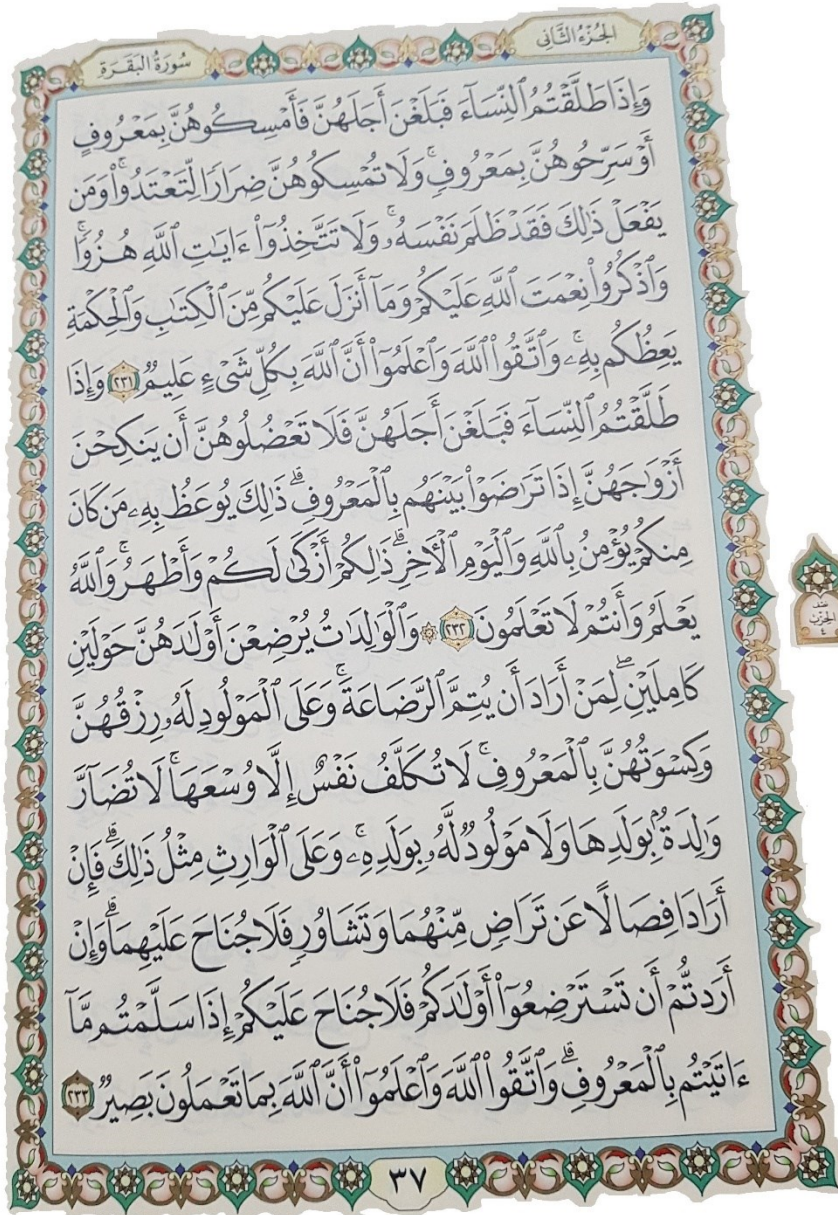 الجُزْءُ الثَّانِي
سُورَةُ البَقَرَةِ
وَإِذَا طَلَّقْتُمُ ٱلنِّسَآءَ فَبَلَغْنَ أَجَلَهُنَّ فَأَمْسِكُوهُنَّ بِمَعْرُوفٍ
أَوْ سَرِّحُوهُنَّ بِمَعْرُوفٖۚ وَلَا تُمْسِكُوهُنَّ ضِرَارٗا لِّتَعْتَدُواْۚ وَمَن
يَفْعَلْ ذَٰلِكَ فَقَدْ ظَلَمَ نَفْسَهُۥۚ وَلَا تَتَّخِذُوٓاْ ءَايَٰتِ ٱللَّهِ هُزُوٗاۚ
وَٱذْكُرُواْ نِعْمَتَ ٱللَّهِ عَلَيْكُمْ وَمَآ أَنزَلَ عَلَيْكُم مِّنَ ٱلْكِتَٰبِ وَٱلْحِكْمَةِ
يَعِظُكُم بِهِۦۚ وَٱتَّقُواْ ٱللَّهَ وَٱعْلَمُوٓاْ أَنَّ ٱللَّهَ بِكُلِّ شَىْءٍ عَلِيمٞ ٢٣١ وَإِذَا
طَلَّقْتُمُ ٱلنِّسَآءَ فَبَلَغْنَ أَجَلَهُنَّ فَلَا تَعْضُلُوهُنَّ أَن يَنكِحْنَ
أَزْوَٰجَهُنَّ إِذَا تَرَٰضَوْاْ بَيْنَهُم بِٱلْمَعْرُوفِۗ ذَٰلِكَ يُوعَظُ بِهِۦ مَن كَانَ
مِنكُمْ يُؤْمِنُ بِٱللَّهِ وَٱلْيَوْمِ ٱلْأٓخِرِۗ ذَٰلِكُمْ أَزْكَىٰ لَكُمْ وَأَطْهَرُۚ وَٱللَّهُ
يَعْلَمُ وَأَنتُمْ لَا تَعْلَمُونَ ٢٣٢ ۞ وَٱلْوَٰلِدَٰتُ يُرْضِعْنَ أَوْلَٰدَهُنَّ حَوْلَيْنِ
كَامِلَيْنِۖ لِمَنْ أَرَادَ أَن يُتِمَّ ٱلرَّضَاعَةَۚ وَعَلَى ٱلْمَوْلُودِ لَهُۥ رِزْقُهُنَّ
وَكِسْوَتُهُنَّ بِٱلْمَعْرُوفِۚ لَا تُكَلَّفُ نَفْسٌ إِلَّا وُسْعَهَاۚ لَا تُضَآرَّ
وَٰلِدَةُۢ بِوَلَدِهَا وَلَا مَوْلُودٞ لَّهُۥ بِوَلَدِهِۦۚ وَعَلَى ٱلْوَارِثِ مِثْلُ ذَٰلِكَۗ فَإِنْ
أَرَادَا فِصَالًا عَن تَرَاضٖ مِّنْهُمَا وَتَشَاوُرٖ فَلَا جُنَاحَ عَلَيْهِمَاۗ وَإِنْ
أَرَدتُّمْ أَن تَسْتَرْضِعُوٓاْ أَوْلَٰدَكُمْ فَلَا جُنَاحَ عَلَيْكُمْ إِذَا سَلَّمْتُم مَّآ
ءَاتَيْتُم بِٱلْمَعْرُوفِۗ وَٱتَّقُواْ ٱللَّهَ وَٱعْلَمُوٓاْ أَنَّ ٱللَّهَ بِمَا تَعْمَلُونَ بَصِيرٞ ٢٣٣
الحِزْبِ
٤
٣٧